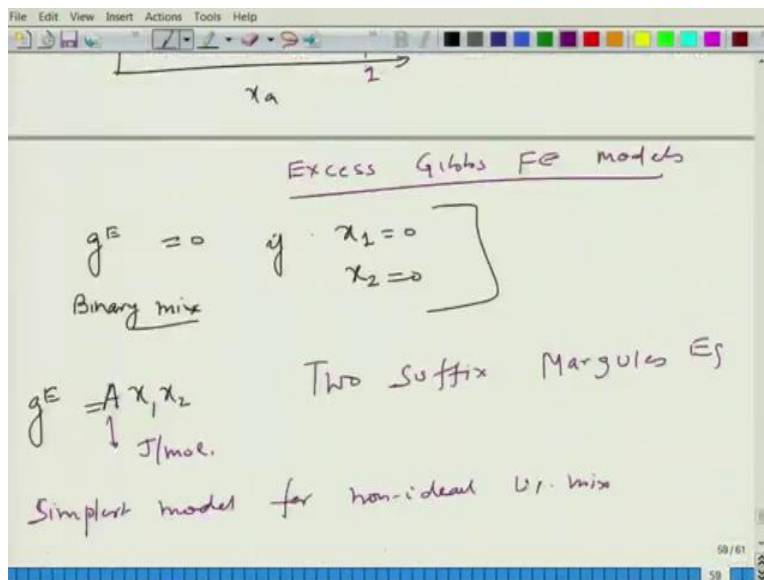 File Edit View Insert Actions Tools Help
1
xₐ
Excess Gibbs FE models
gᴱ = 0 if x₁ = 0
x₂ = 0
Binary mix
gᴱ = A x₁ x₂ Two Suffix Margules Eq
J/mol.
Simplest model for non-ideal mix
59/61
59